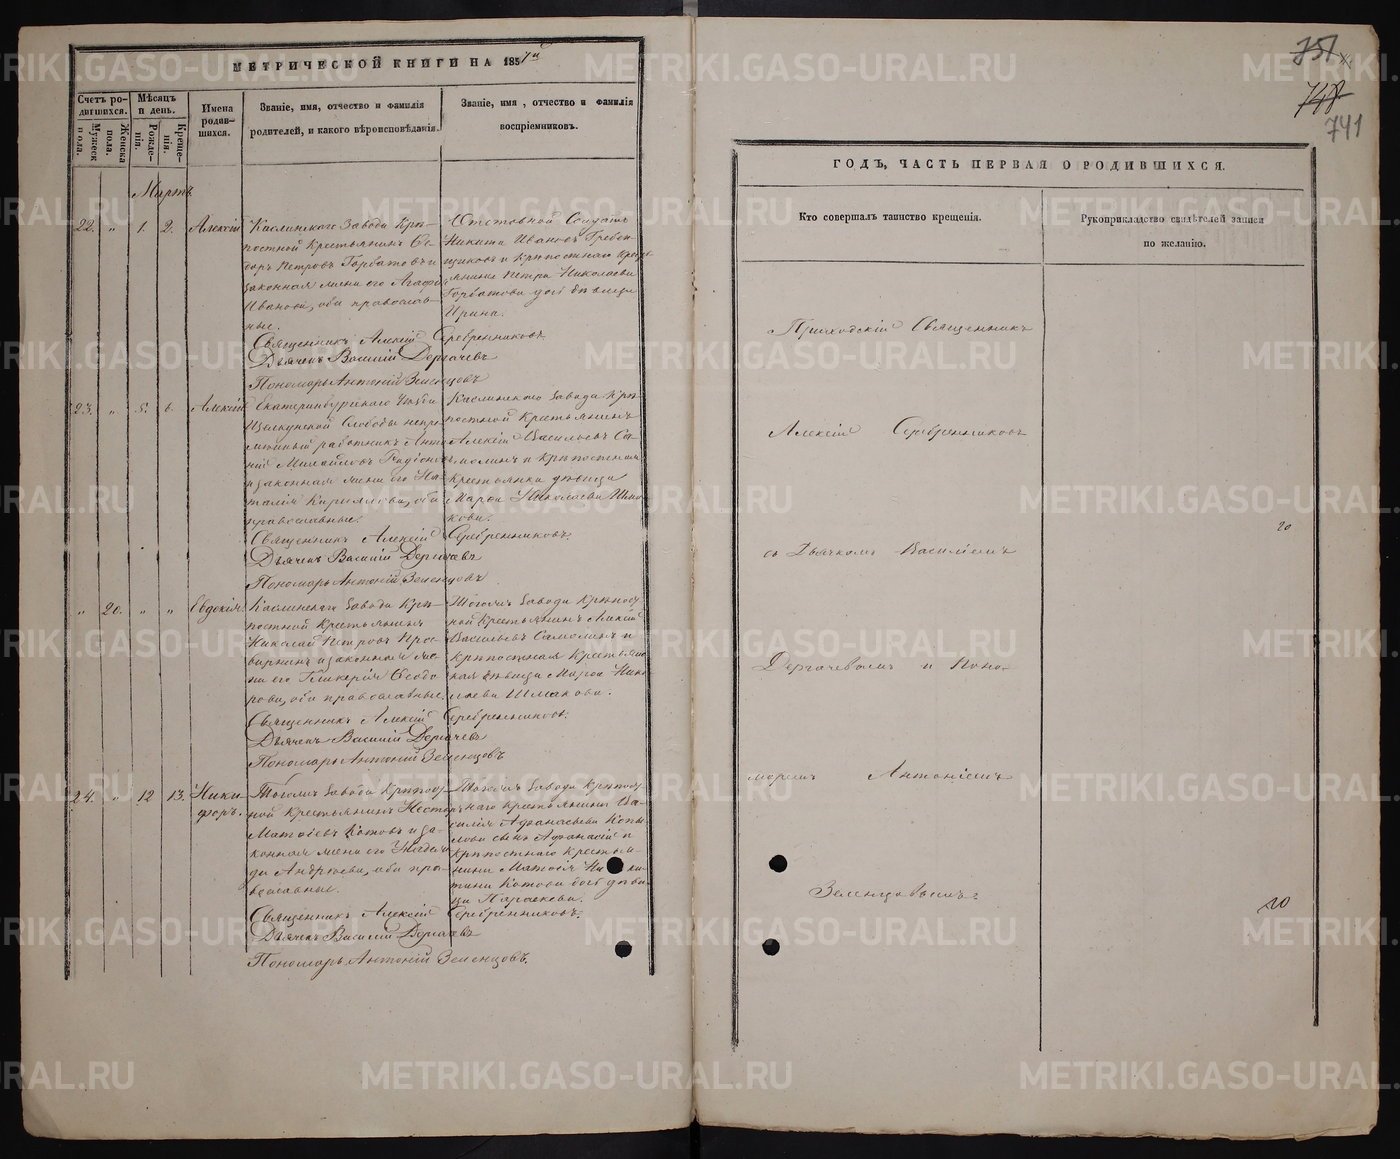 МЕТРИЧЕСКОЙ КНИГИ НА 1857й
Счетъ ро-
дившихся.
Мѣсяцъ
и день.
Имена
родив-
шихся.
Званіе, имя, отчество и фамилія
родителей, и какого вѣроисповѣданія.
Званіе, имя, отчество и фамилія
воспріемниковъ.
Мужеск
пола.
Женска
пола.
Рожде-
нія.
Креще-
нія.
Мартъ
22. " 1. 2. Алексій
Каслинскаго Завода Крѣ-
постной Крестьянинъ Ѳе-
доръ Петровъ Горбатовъ и
законная жена его Агафія
Иванова, оба православ-
ные.
Отставной Солдатъ
Никита Ивановъ Гребен-
щиковъ и Крѣпостнаго Кресть-
янина Петра Николаева
Горбатова дочь дѣвица
Ирина.
Священникъ Алексій Серебренниковъ
Дьячекъ Василій Дергачевъ
Пономарь Антоній Зеленцовъ
23. " 5. 6. Алексій
Екатеринбургскаго Уѣзда
Щелкунской Слободы непре-
мѣнный работникъ Анто-
ній Михайловъ Радіоновъ
и законная жена его На-
талія Кириллова, оба
православные.
Каслинскаго Завода Крѣ-
постной Крестьянинъ
Алексій Васильевъ Са-
молинъ и Крѣпостная
Крестьянка дѣвица
Марѳа Николаева Шма-
кова.
Священникъ Алексій Серебренниковъ.
Дьячекъ Василій Дергачевъ
Пономарь Антоній Зеленцовъ
" 20. " " Евдокія.
Каслинскаго Завода Крѣ-
постной Крестьянинъ
Николай Петровъ Прос-
вирнинъ и законная же-
на его Гликерія Ѳеодо-
рова, оба православные.
Тогожъ Завода Крѣпост-
ной Крестьянинъ Алексій
Васильевъ Самолинъ и
Крѣпостная Крестьянс-
кая дѣвица Марѳа Нико-
лаева Шмакова.
Священникъ Алексій Серебренниковъ.
Дьячекъ Василій Дергачевъ
Пономарь Антоній Зеленцовъ
24. " 12 13. Ники-
форъ.
Тогожъ Завода Крѣпост-
ной Крестьянинъ Несторъ
Матѳіевъ Котовъ и за-
конная жена его
Андреева, оба пра-
вославные.
Тогожъ Завода Крѣпост-
наго Крестьянина Ва-
силія Аѳанасьева Копы-
лова сынъ Аѳанасій и
Крѣпостнаго Крестья-
нина Матѳія Ни ки-
тина Котова дочь дѣви-
ца Параскева.
Священникъ Алексій Серебренниковъ.
Дьячекъ Василій Дергачевъ
Пономарь Антоній Зеленцовъ.
751
748
741
ГОДЪ, ЧАСТЬ ПЕРВАЯ О РОДИВШИХСЯ.
Кто совершалъ таинство крещенія.
Рукоприкладство свидѣтелей записи
по желанію.
Приходскій Священникъ
Алексій Серебренниковъ
съ Дьячкомъ Василіемъ
Дергачевымъ и Поно-
маремъ Антоніемъ
Зеленцовымъ.
20
20
METRIKI.GASO-URAL.RU